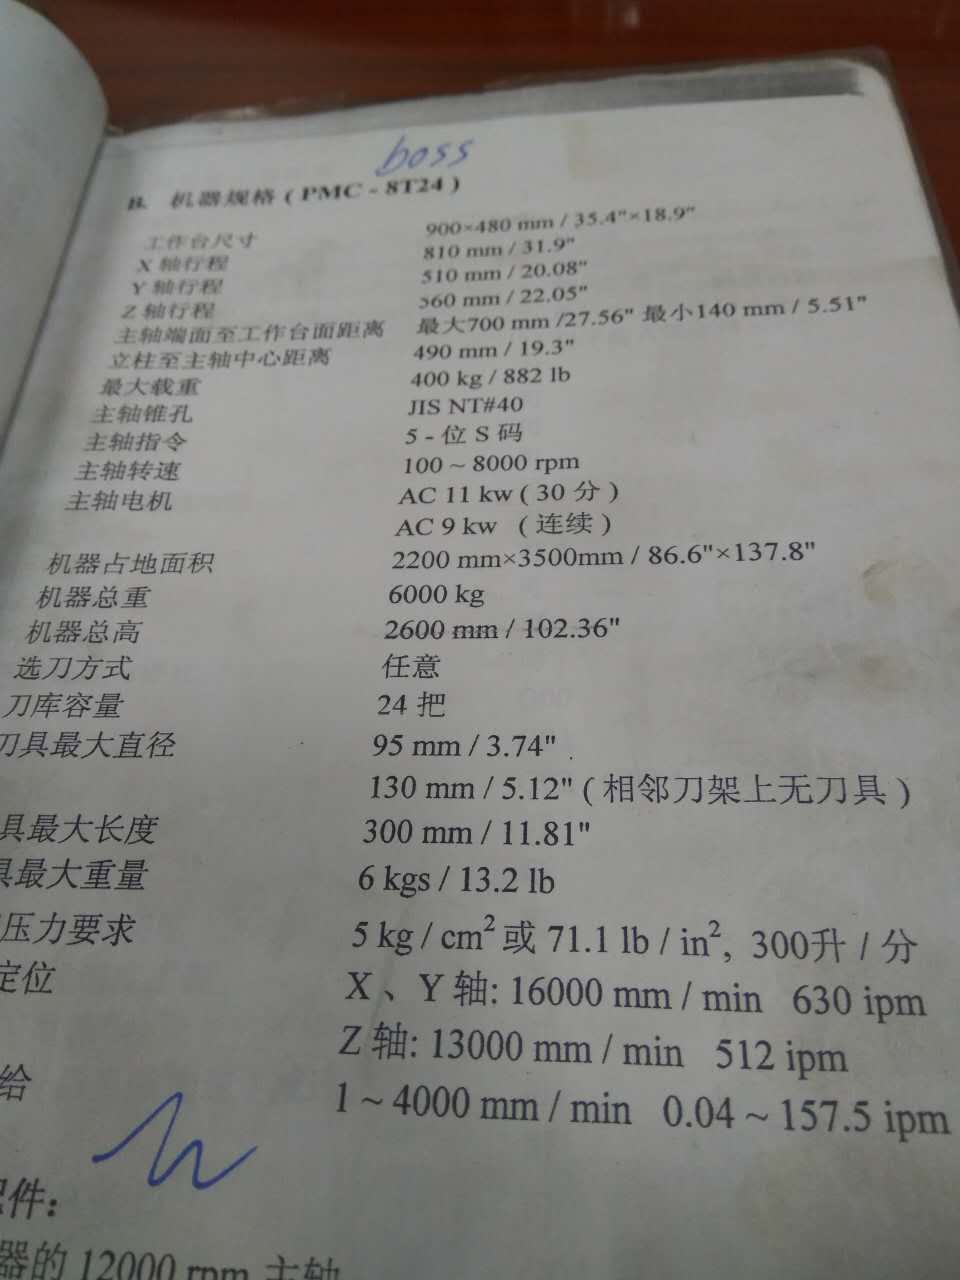 boss
B. 机器规格 ( PMC - 8T24 )
工作台尺寸 900×480 mm / 35.4"×18.9"
X 轴行程 810 mm / 31.9"
Y 轴行程 510 mm / 20.08"
Z 轴行程 560 mm / 22.05"
主轴端面至工作台面距离 最大700 mm /27.56" 最小140 mm / 5.51"
立柱至主轴中心距离 490 mm / 19.3"
最大载重 400 kg / 882 lb
主轴锥孔 JIS NT#40
主轴指令 5 - 位 S 码
主轴转速 100 ~ 8000 rpm
主轴电机 AC 11 kw ( 30 分 )
AC 9 kw ( 连续 )
机器占地面积 2200 mm×3500mm / 86.6"×137.8"
机器总重 6000 kg
机器总高 2600 mm / 102.36"
选刀方式 任意
刀库容量 24 把
刀具最大直径 95 mm / 3.74"
130 mm / 5.12" ( 相邻刀架上无刀具 )
具最大长度 300 mm / 11.81"
具最大重量 6 kgs / 13.2 lb
压力要求 5 kg / cm² 或 71.1 lb / in², 300升 / 分
定位 X 、Y 轴: 16000 mm / min 630 ipm
Z 轴: 13000 mm / min 512 ipm
给 1 ~ 4000 mm / min 0.04 ~ 157.5 ipm
件:
器的 12000 rpm 主轴